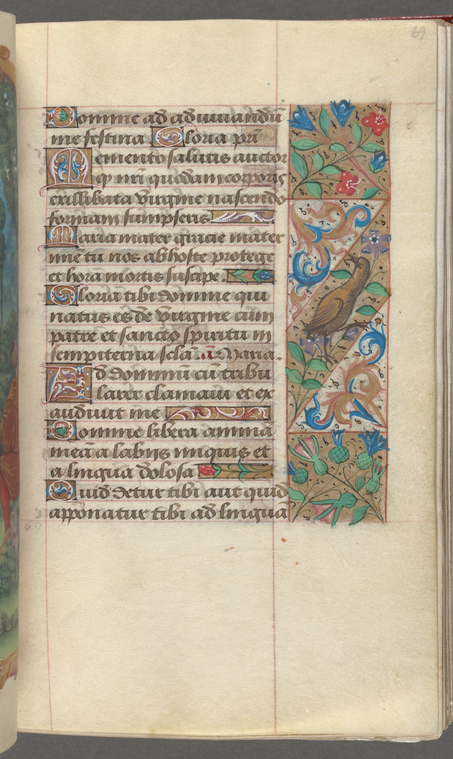 69
Domine ad adiuuandū
me festina Gloria pri
Memento salutis auctor
q̄ nri quondam corporis
ex illibata virgine nascendo
formam sumpseris
Maria mater gracie mater
nie tu nos ab hoste protege
et hora mortis suscipe.
Gloria tibi domine qui
natus es de virgine cum
patre et sancto spiritu in
sempiterna sclā. a. Maria
Ad dominū cū tribu
larer clamaui et ex
audiuit me
Domine libera animā
meā a labijs iniquis et
a lingua dolosa
Quid detur tibi aut quid
apponatur tibi ad lingua